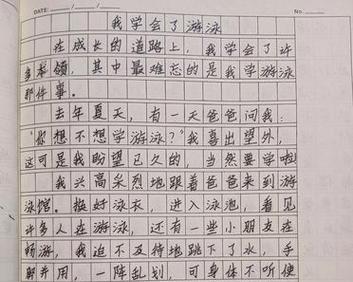 DATE: / /
No.
我学会了游泳
在成长的道路上，我学会了许
多本领，其中最难忘的是我学游泳
那件事。
去年夏天，有一天爸爸问我：
“你想不想学游泳？”我喜出望外，
这可是我盼望已久的，当然要学啦
我兴高采烈地跟着爸爸来到游
泳馆。换好泳衣，进入泳池，看见
许多人在游泳，还有一些小朋友在
畅游，我迫不及待地跳下了水，手
脚并用，一阵乱划，可身体不听使